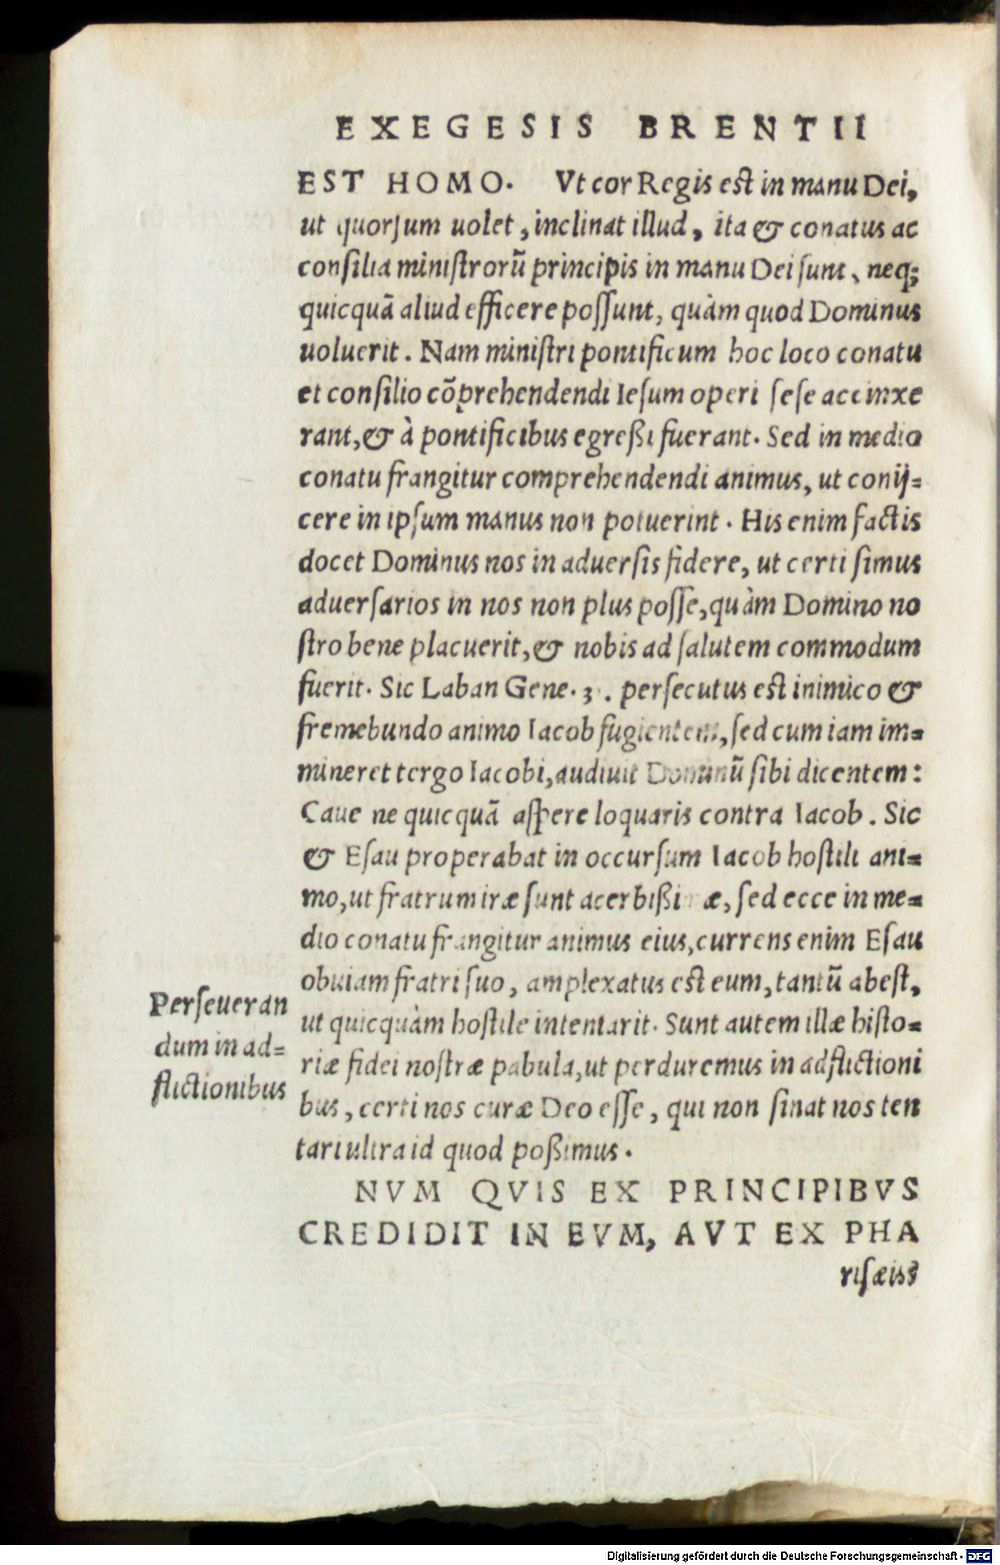 EXEGESIS BRENTII
EST HOMO. Vt cor Regis est in manu Dei,
ut quorsum uolet, inclinat illud, ita & conatus ac
consilia ministrorũ principis in manu Dei sunt, neq;
quicquã aliud efficere possunt, quàm quod Dominus
uoluerit. Nam ministri pontificum hoc loco conatu
et consilio cõprehendendi Iesum operi sese accinxe
rant, & à pontificibus egreßi fuerant. Sed in medio
conatu frangitur comprehendendi animus, ut conij=
cere in ipsum manus non potuerint. His enim factis
docet Dominus nos in aduersis fidere, ut certi simus
aduersarios in nos non plus posse, quàm Domino no
stro bene placuerit, & nobis ad salutem commodum
fuerit. Sic Laban Gene. 3 . persecutus est inimico &
fremebundo animo Iacob fugientem, sed cum iam im=
mineret tergo Iacobi, audiuit Dominũ sibi dicentem:
Caue ne quicquã aspere loquaris contra Iacob. Sic
& Esau properabat in occursum Iacob hostili ani=
mo, ut fratrum iræ sunt acerbißimæ, sed ecce in me=
dio conatu frangitur animus eius, currens enim Esau
obuiam fratri suo, amplexatus est eum, tantũ abest,
ut quicquàm hostile intentarit. Sunt autem illæ histo=
riæ fidei nostræ pabula, ut perduremus in adflictioni
bus, certi nos curæ Deo esse, qui non sinat nos ten
tari ultra id quod poßimus.
Perseueran
dum in ad=
flictionibus
NVM QVIS EX PRINCIPIBVS
CREDIDIT IN EVM, AVT EX PHA
risæis?
Digitalisierung gefördert durch die Deutsche Forschungsgemeinschaft - DFG